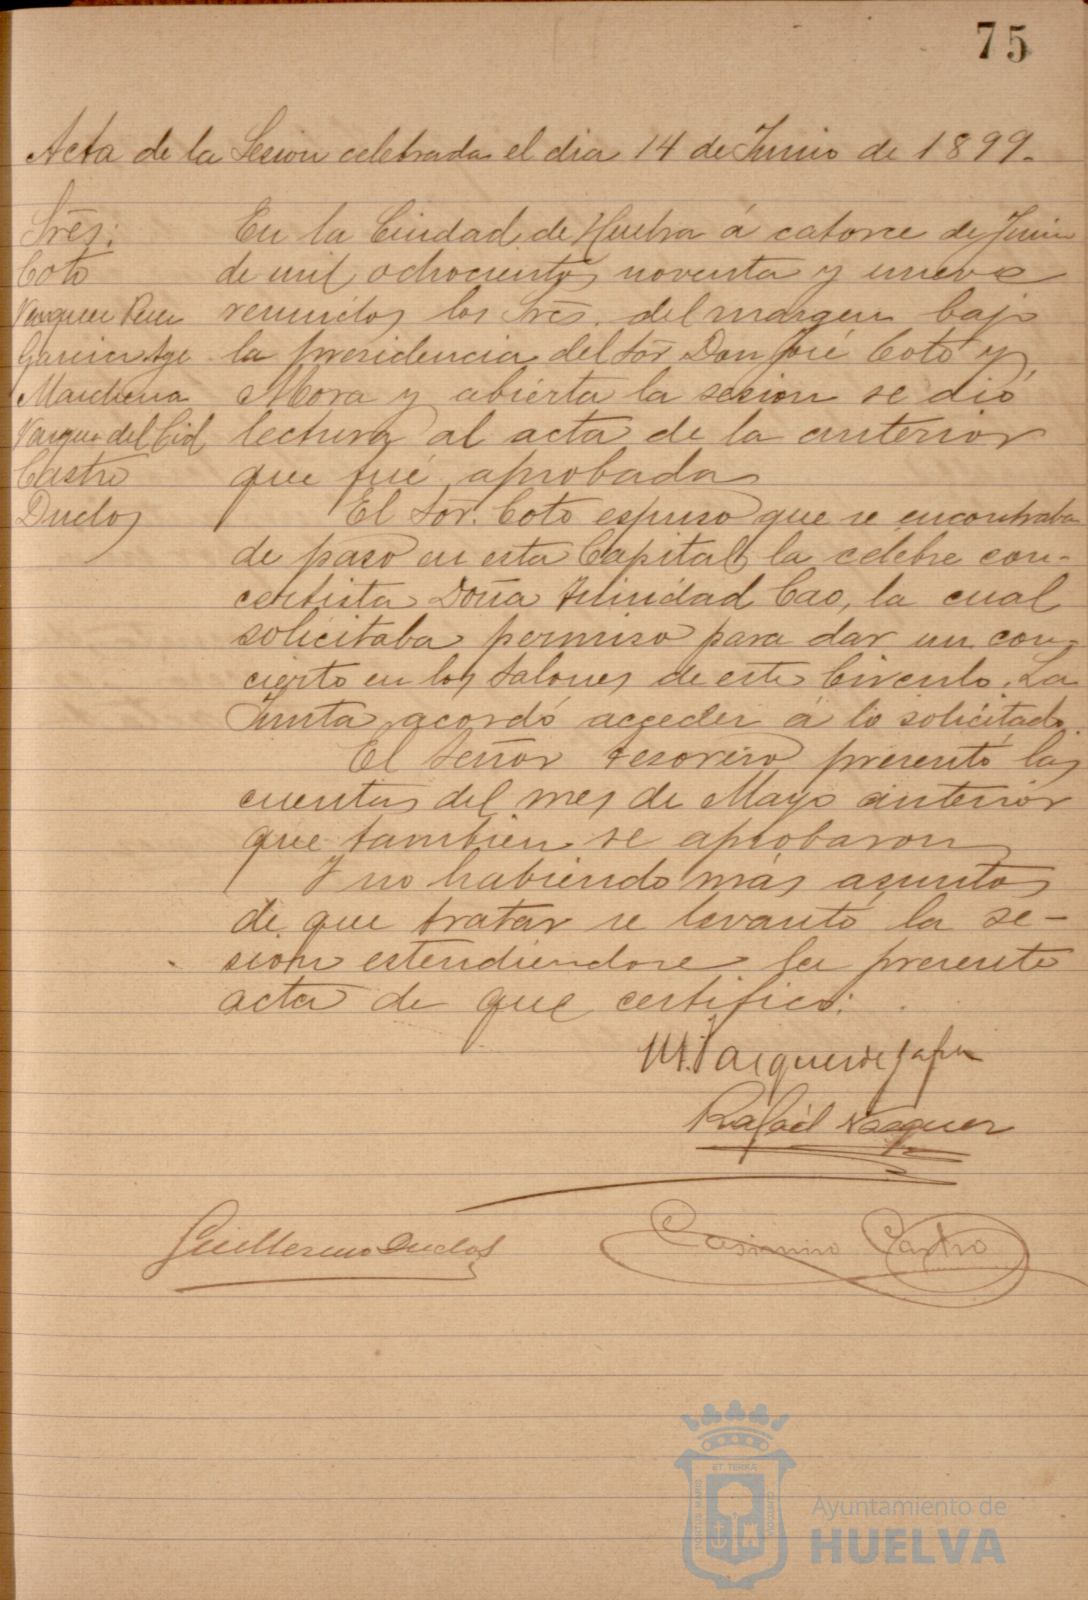 75
Acta de la Sesion celebrada el dia 14 de Junio de 1899.
Srēs:
Coto
Vazquez Perez
Garcia Age
Marchena
Vazquez del Cid
Castro
Duclos
En la Ciudad de Huelva á catorce de Junio
de mil ochocientos noventa y nueve
reunidos los Srēs. del margen bajo
la presidencia del Sor Don José Coto y
Mora y abierta la sesion se dió
lectura al acta de la anterior
que fué aprobada
El Sor. Coto espuso que se encontraba
de paso en esta Capital la célebre con-
certista Doña Trinidad Cao, la cual
solicitaba permiso para dar un con-
cierto en los salones de este Circulo. La
Junta acordó acceder á lo solicitado.
El Señor tesorero presentó las
cuentas del mes de Mayo anterior
que tambien se aprobaron
Y no habiendo más asuntos
de que tratar se levantó la se-
sion estendiendose la presente
acta de que certifico:
M. Vazquez de
Rafaél Vazquez
Guillermo Duclos
Casimiro Castro
PORTUS MARIS ET TERRÆ CUSTODIA
Ayuntamiento de
HUELVA